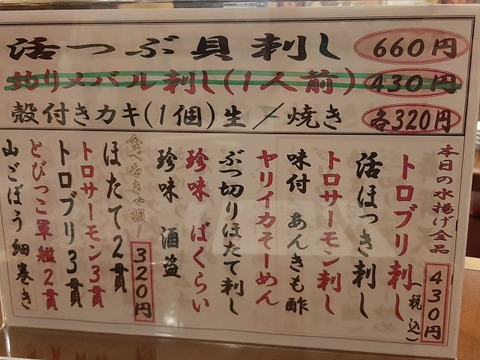 活つぶ貝刺し 660円
釣りメバル刺し(1人前) 430円
殻付きカキ(1個)生/焼き 各320円
本日の水揚げ全品
430円(税込)
トロブリ刺し
活ほっき刺し
トロサーモン刺し
味付あんきも酢
ヤリイカそーめん
ぶつ切りほたて刺し
珍味 ばくらい
珍味 酒盗
食べなきゃ損!
320円
ほたて2貫
トロブリ3貫
トロサーモン3貫
とびっこ軍艦2貫
山ごぼう細巻き